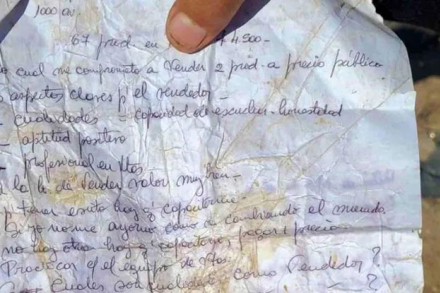 1000 av.
67 prod. en 4.500 =
o cual me comprometo a Vender 2 prod. a precio público
s aspectos claves p/ el vendedor -
- cualidades = capacidad de escuchar - honestidad
- aptitud positivo
- profesional en Vtas
la h. de Vender valor muy bien -
p. tener exito hay q' capacitarme
Si yo no me ayorno como va cambiando el mercado
no hay otra hay q' capacitarse, pagar 1 precio
Practicar c/ el equipo de Vtas.
Cuales son cualidades como Vendedor?